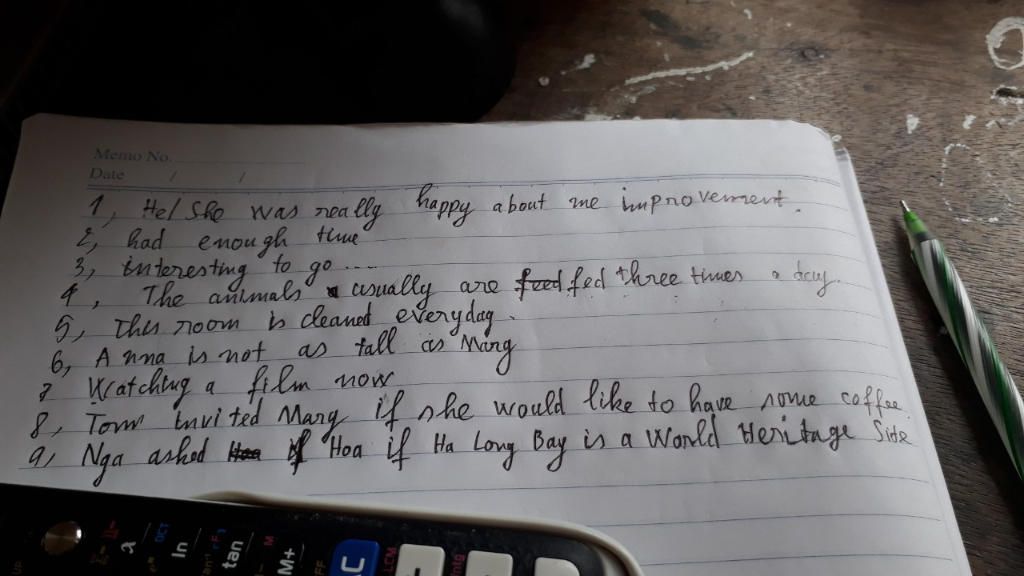 Memo No.
Date / /
1, He/ She was really happy about me improvement.
2, had enough time
3, interesting to go ....
4, The animals usually are fed three times a day.
5, This room is cleaned everyday.
6, Anna is not as tall as Mary
7 Watching a film now
8, Tom invited Mary if she would like to have some coffee.
9, Nga asked Hoa if Ha Long Bay is a World Heritage Side
OCT
ln
tan
M
M+
AC
LCM